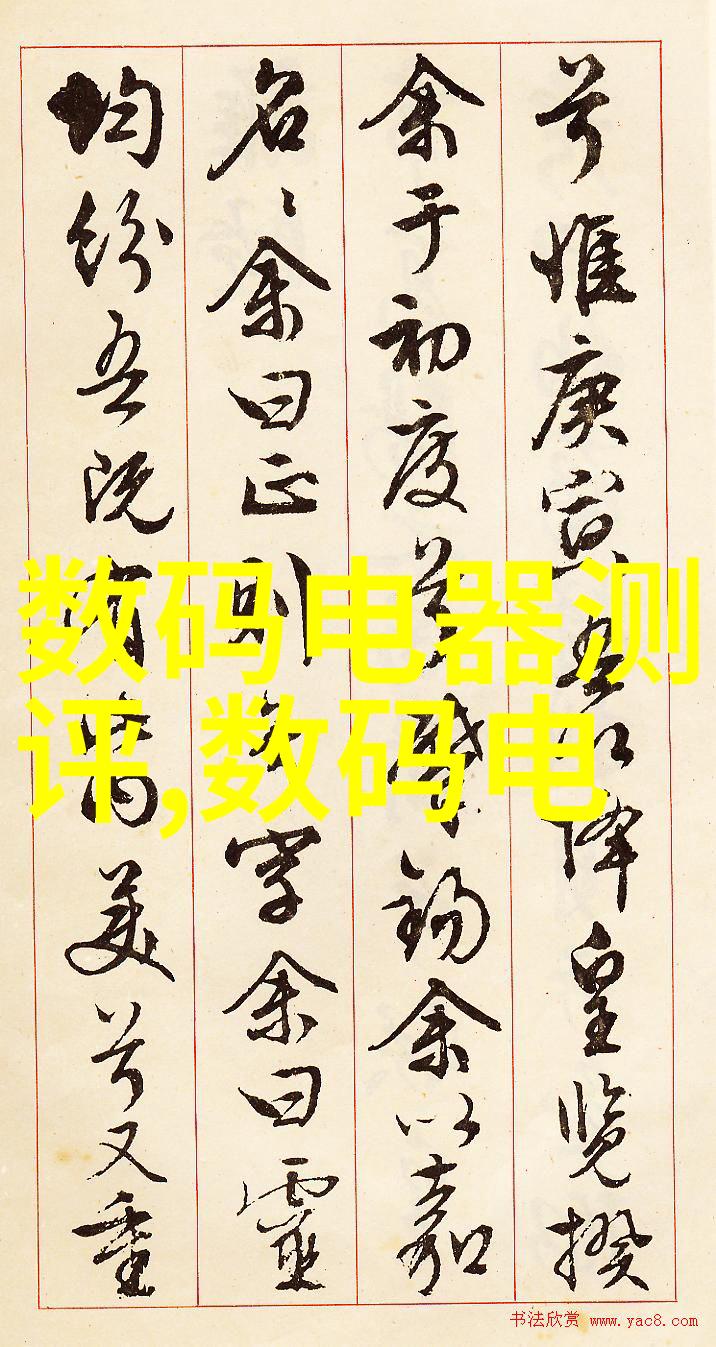 兮惟庚寅吾以降皇览揆
余于初度兮肇锡余以嘉
名〻余曰正则兮字余曰靈
均纷吾既有此内美兮又重
数码电器测
评,数码电
书法欣赏 www.yac8.com